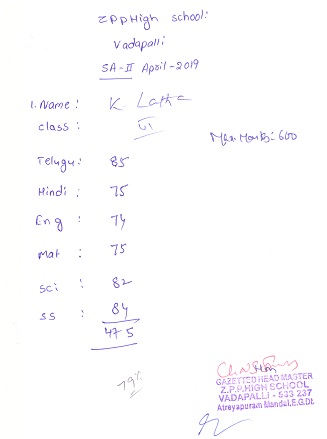 ZPPHigh School:
Vadapalli
SA-II April-2019
1. Name : K Latha
class : VI
Max Marks:- 600
Telugu : 85
Hindi : 75
Eng : 74
Mat : 75
Sci : 82
SS : 84
475
79%
GAZETTED HEAD MASTER
Z.P.P.HIGH SCHOOL
VADAPALLI - 533 237
Atreyapuram Mandal, E.G.Dt.